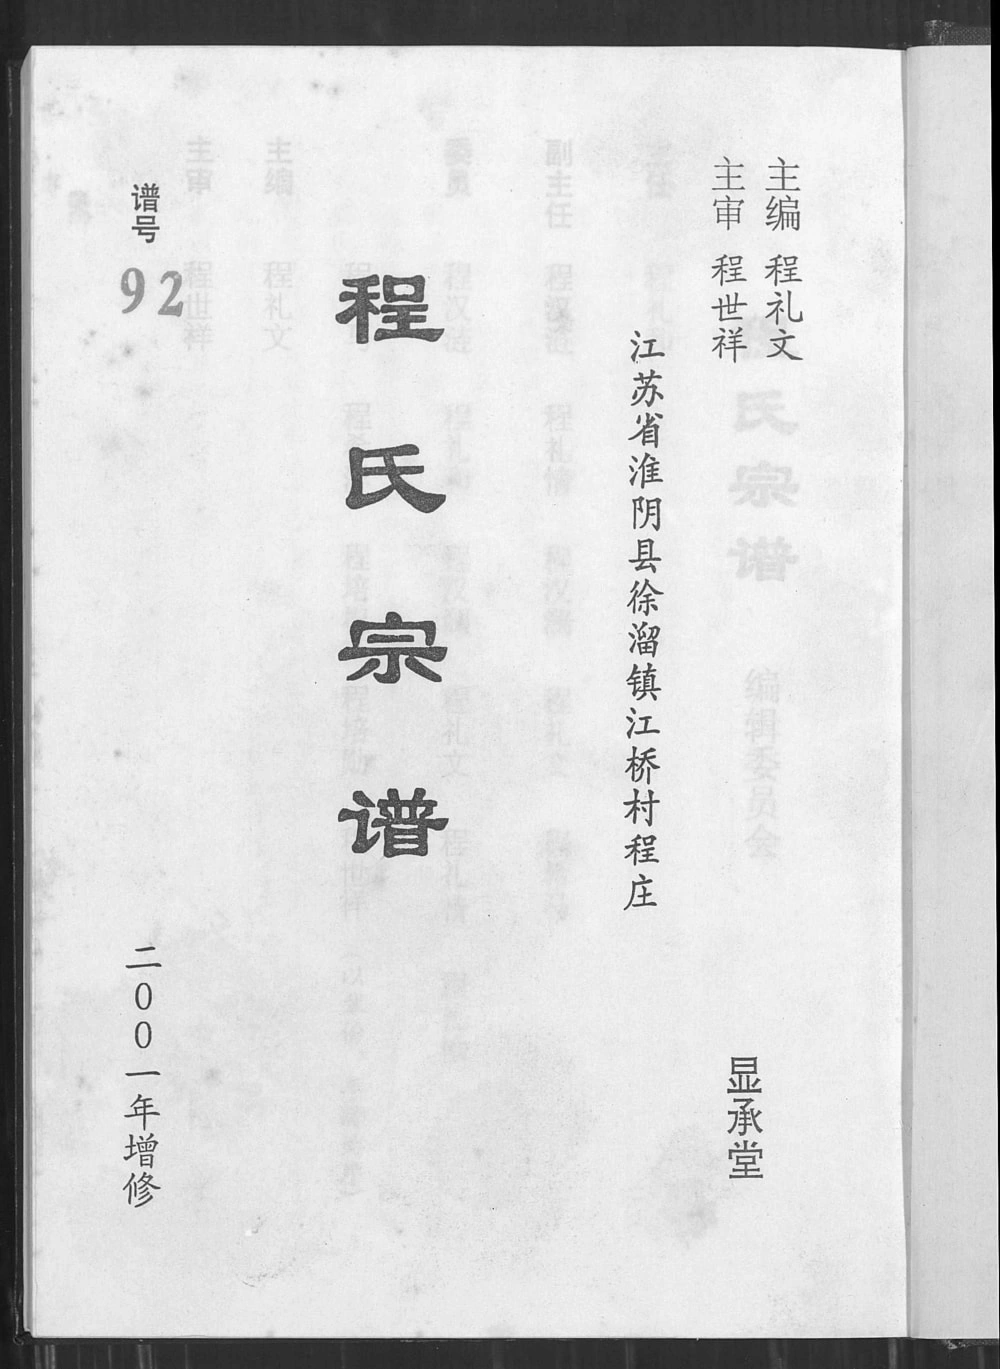 主编 程礼文
主审 程世祥
显承堂
江苏省淮阴县徐溜镇江桥村程庄
程氏宗谱
谱号 92
二00一年增修